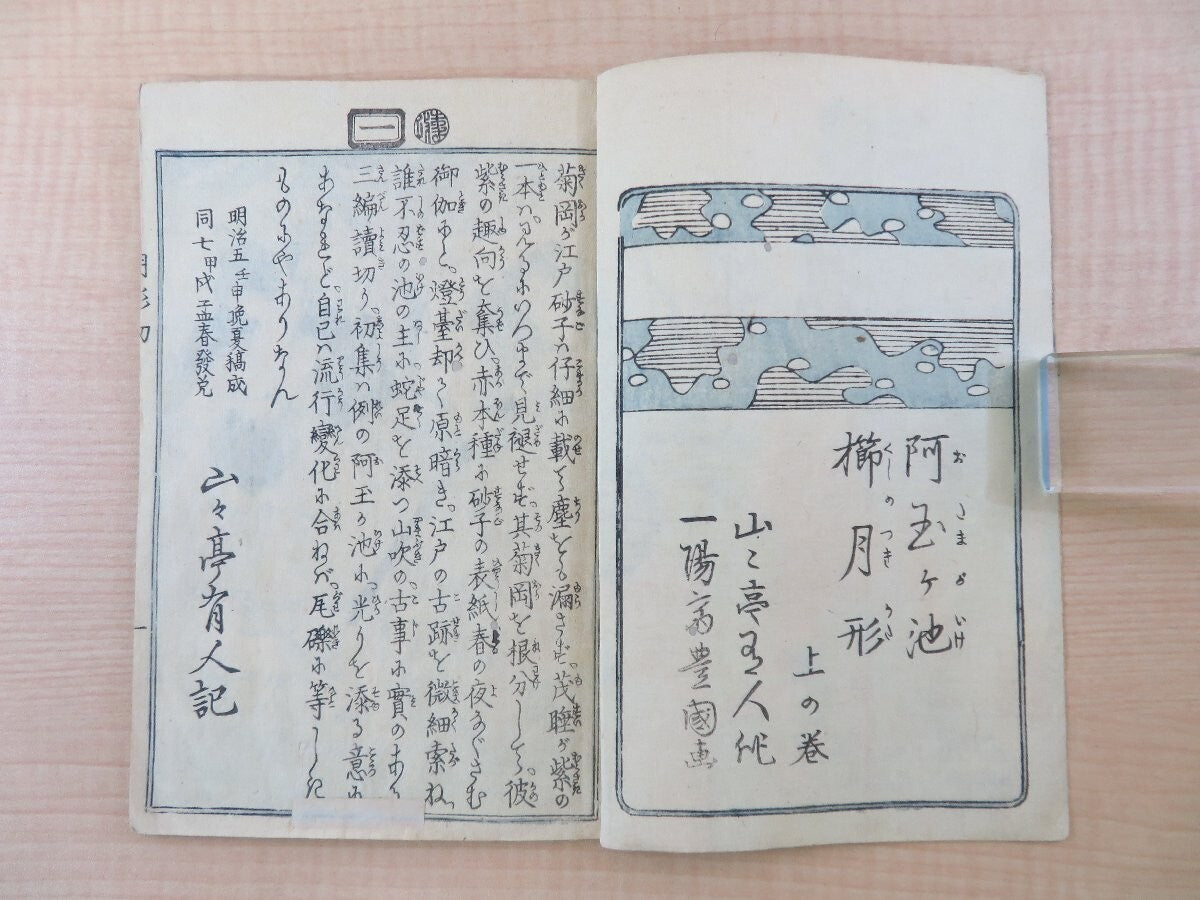 阿玉ヶ池
櫛月形
上の巻
山々亭有人作
一陽斎豊國画
一
菊岡が江戸砂子ハ仔細に載て塵をも漏さず茂睡が紫の
一本ハ見るにいつまでも見褪せず其菊岡を根分して彼
紫の趣向を奪ひ赤本種に砂子の表紙春の夜なぐさむ
御伽にと燈臺却て原暗き江戸の古跡を微細索ね
誰不忍の池の主に蛇足を添つ山吹の古事に實のあり
三編讀切り初集ハ例の阿玉ヶ池に光りを添る意に
あなれど自己ハ流行變化に合ねバ尾礫に等しき
ものにやありなん
明治五壬申晩夏稿成
同七甲戌孟春發兌
山々亭有人記